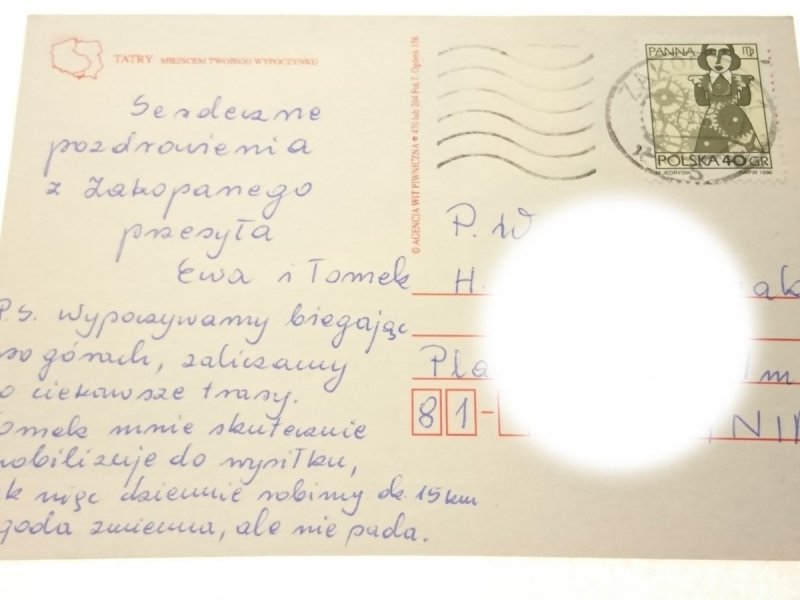 TATRY MIEJSCEM TWOJEGO WYPOCZYNKU
Serdeczne
pozdrowienia
z Zakopanego
przesyła
Ewa i Tomek
P.S. Wypoczywamy biegając
po górach, zaliczamy
o ciekawsze trasy.
Tomek mnie skutecznie
mobilizuje do wysiłku,
ak więc dziennie robimy ok 15 km
goda zmienna, ale nie pada.
© AGENCJA WIT PIWNICZNA • 470 lub 204 Fot. T. Ogórek 156
PANNA
POLSKA 40 GR
M. JEDRYSIK PWPW 1996
P. W
H.
Pla
81-